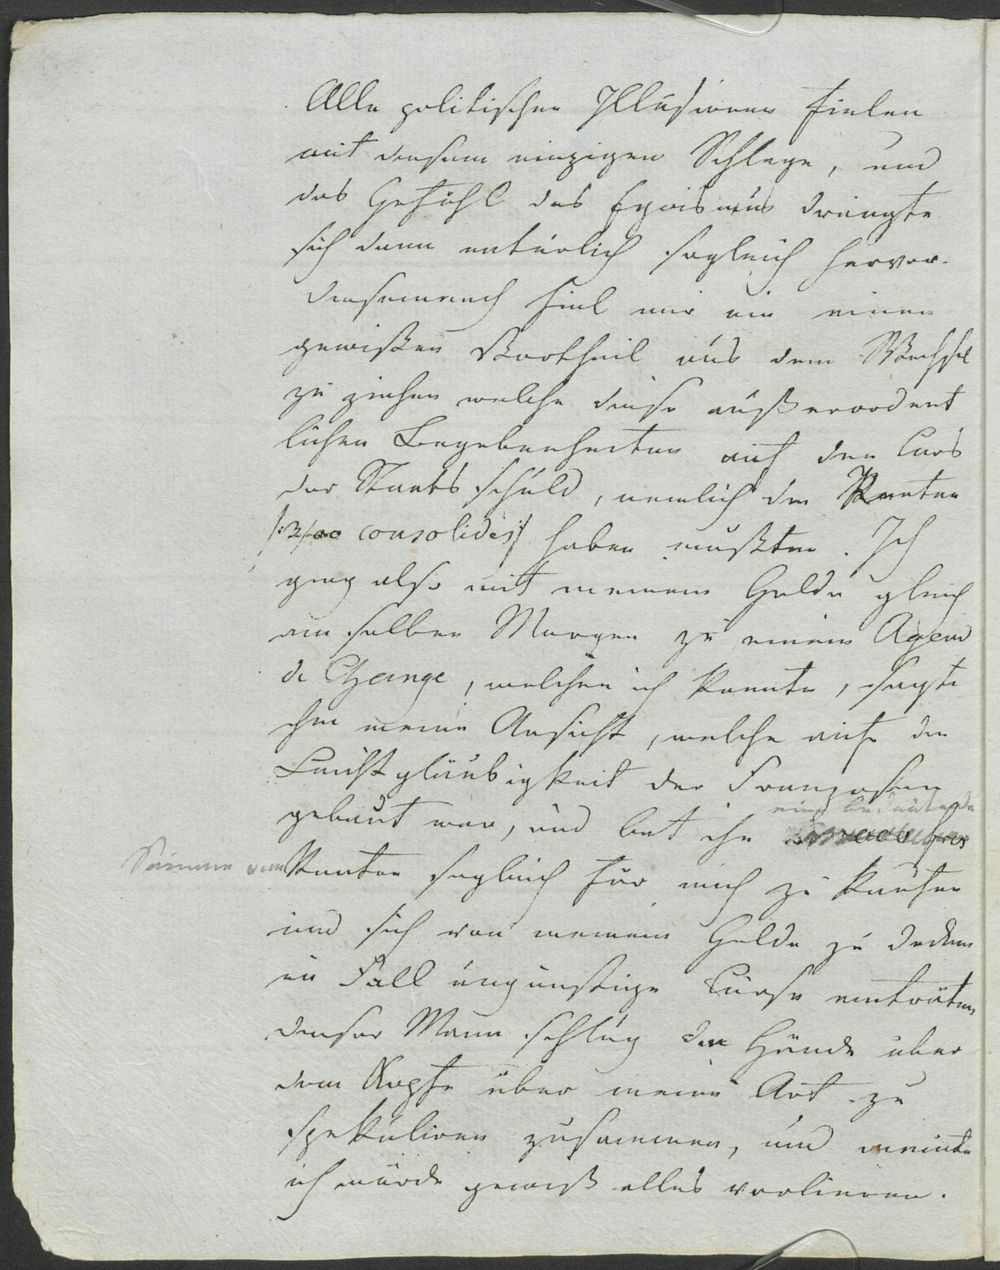 Alle politischen Illusionen fielen
mit diesem einzigen Schlage, und
das Gefühl des Egoismus drängte
sich dann natürlich sogleich hervor.
Diesemnach fiel mir ein einen
gewißen Vortheil aus dem Wechsel
zu ziehen welche diese außerordent
lichen Begebenheiten auf den Curs
der Staats schuld, nemlich die Renten
consolidés :/ haben mußten. Ich
ging also mit meinem Gelde gleich
am selben Morgen zu einem Agend
de Change, welchen ich kannte, sagte
ihm meine Ansicht, welche auf die
Leichtgläubigkeit der Franzosen
eine bedeutende
gebaut war, und bat ihn
Summe von Renten sogleich für mich zu kaufen
und sich von meinem Gelde zu decken
im Fall ungünstige Curse einträten
dieser Mann schlug die Hände über
dem Kopfe über meine Art zu
spekuliren zusammen, und meinte
ich würde gewiß alles verlieren.